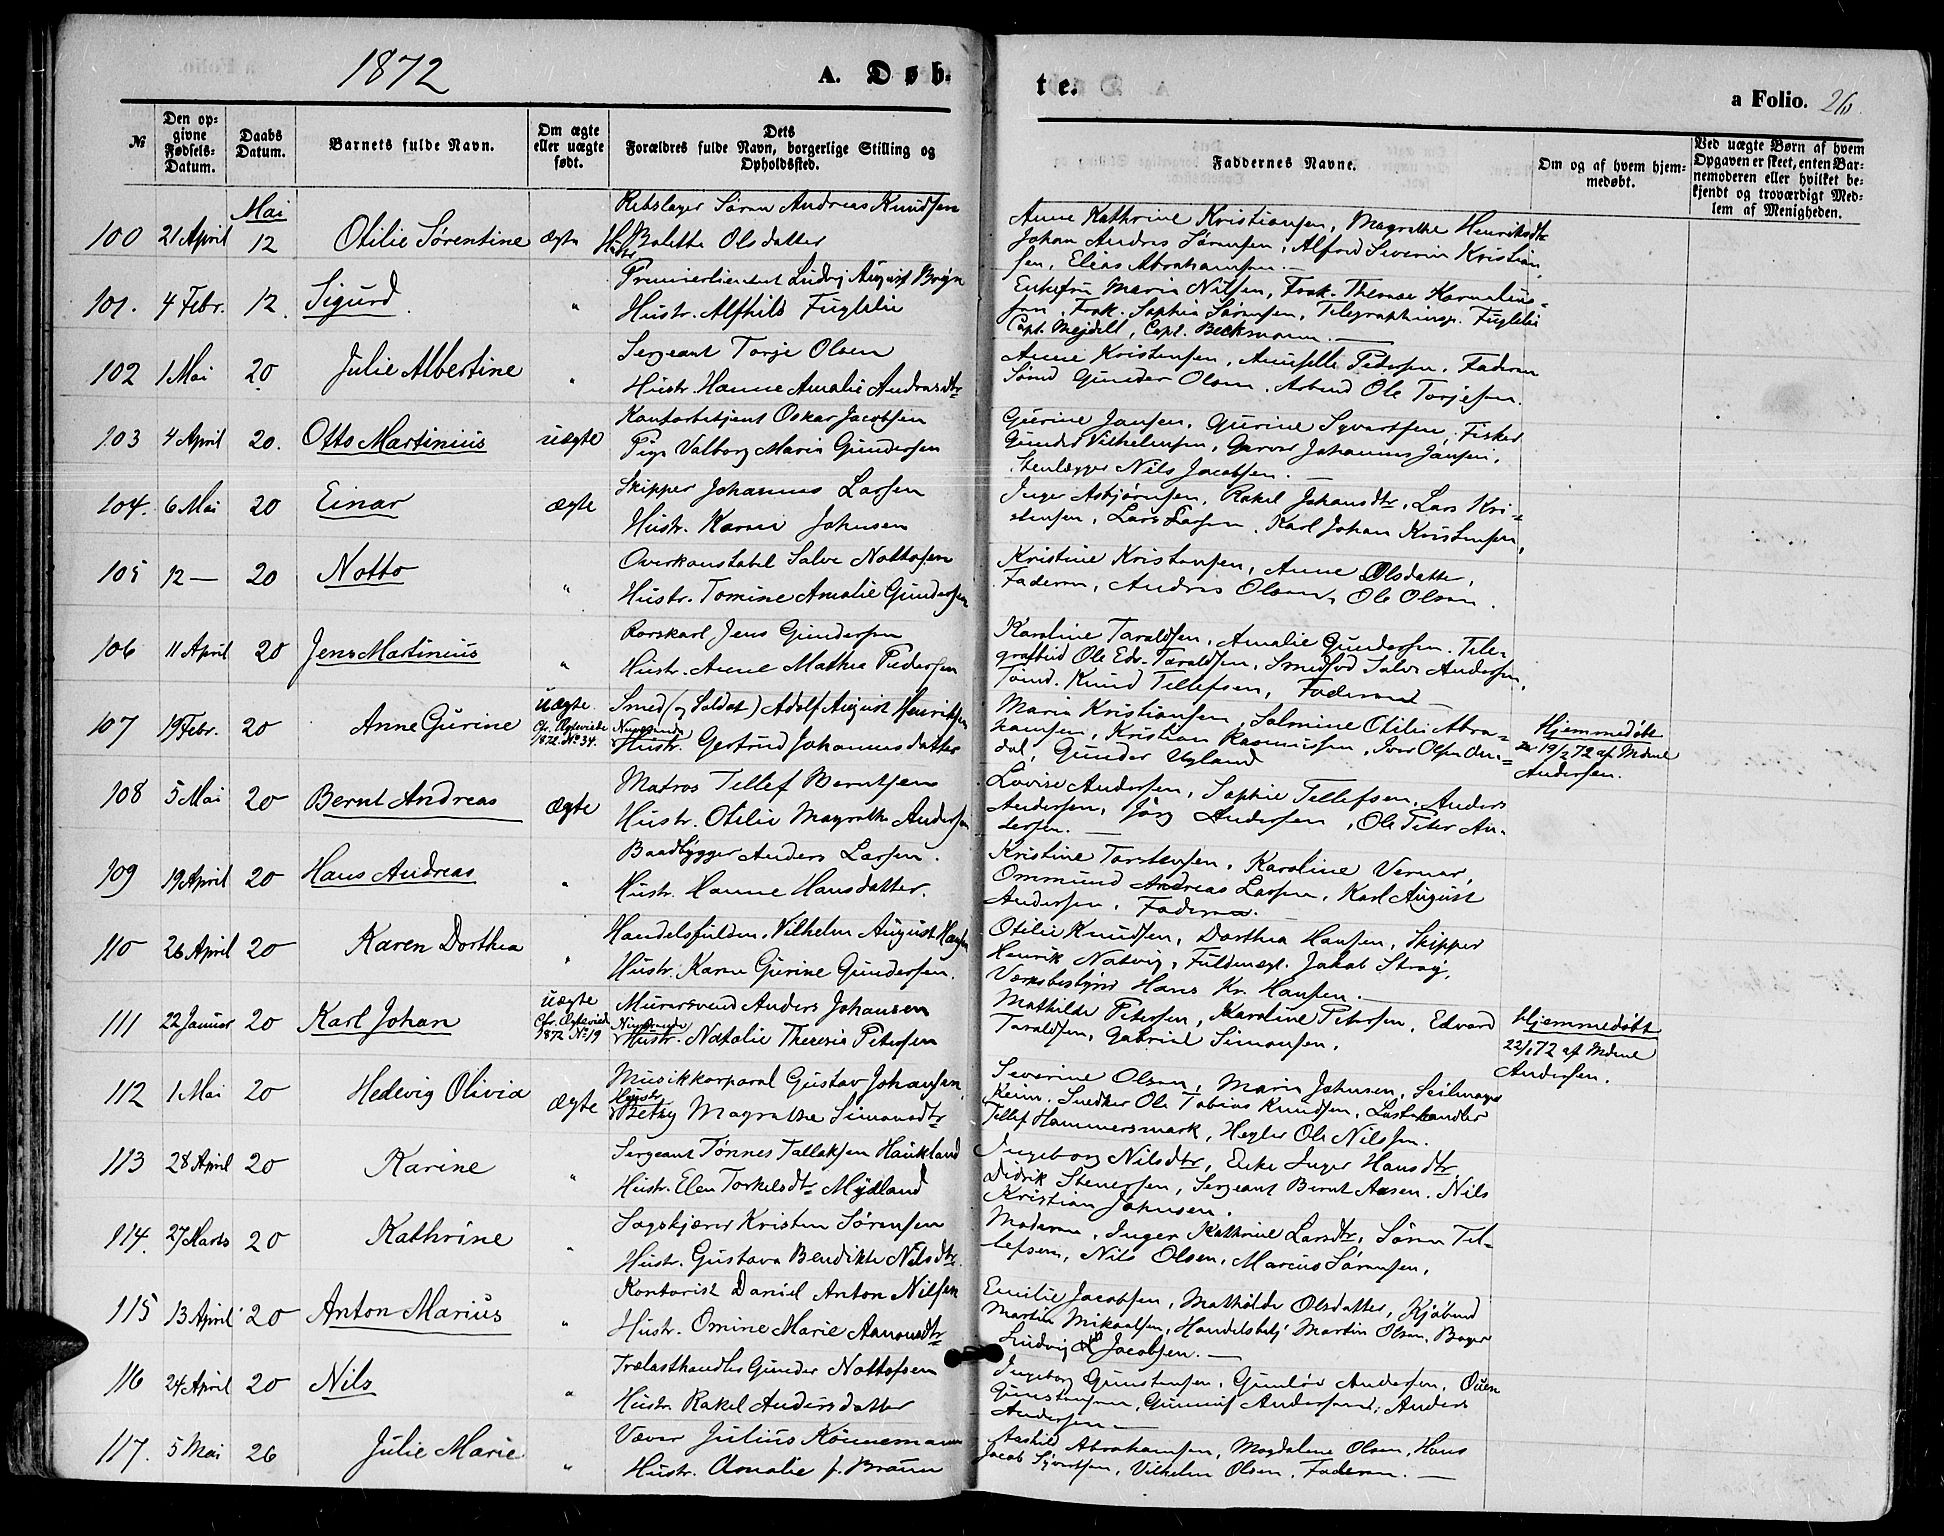 1872
A. Døb-
te.
a Folio. 26.
№
Den op-
givne
Fødsels-
Datum.
Daabs
Datum.
Barnets fulde Navn.
Om ægte
eller uægte
født.
Dets
Forældres fulde Navn, borgerlige Stilling og
Opholdssted.
Faddernes Navne.
Om og af hvem hjem-
medøbt.
Ved uægte Børn af hvem
Opgaven er skeet, enten Bar-
nemoderen eller hvilket be-
kjendt og troværdigt Med-
lem af Menigheden.
Mai
100 21 April 12 Otilie Sørentine ægte
Rebslager Søren Andreas Knudsen
Hustr. Bolette Olsdatter
Anne Kathrine Kristiansen, Magrethe Henriksdtr
Johan Andres Sørensen, Alfred Severin Kristian
sen, Elias Abrahamsen.
101. 4 Febr. 12. Sigurd "
Premierlieutenant Ludvig August
Hustr. Alfhild Fuglelie
Enkefru Maria Nilsen, Frøk. Therese Kornelius-
sen, Frøk. Sophie Sørensen, Telegraphinsp. Fuglelie
Capt. Mejdell, Capt. Beckmann.
102 1 Mai 20 Julie Albertine "
Sergeant Torje Olsen
Hustr. Hanne Amalie Andreasdtr
Anne Kristensen, Pedersen, Faderen
Gunder Olsen, Arbmd Ole Torjesen.
103 4 April 20. Otto Martinius uægte
Kontorbetjent Oskar Jacobsen
Pige Valborg Maria Gundersen
Gurine Jansen, Gurine Syvertsen, Fisker
Gunder Vilhelmsen, Garver Johannes Jansen,
Stenlægger Nils Jacobsen.
104. 6 Mai 20 Einar ægte
Skipper Johannes Larsen
Hustr. Karen Johnsen
Inger Asbjørnsen, Rakel Johansdtr, Lars Kri-
stensen, Lars Larsen, Karl Johan Kristensen,
105 12 — 20 Notto "
Overkonstabel Salve Nottosen
Hustr. Tomine Amalie Gundersen
Kristine Kristensen, Anne Olsdatter,
Faderen, Andreas Olsen, Ole Olsen.
106 11 April 20 Jens Martinius "
Rorskarl Jens Gundersen
Hustr. Anne Mathea Pedersen
Karoline Taraldsen, Amalie Gundersen, Tele-
grafbud Ole Edv. Taraldsen, Smedsvd Salve Andersen,
Tømd. Knud Tellefsen, Faderen
107 19 Febr. 20 Anne Gurine uægte.
Cfr. Ægteviede
1872 No 34.
Smed (og Soldat) Adolf August Henriksen
Nuværende
Hustr. Gertrud Johannesdatter
Maria Kristiansen, Salmine Otilie Abra-
hamsen, Kristian Rasmussen, Iver Olsen
dal, Gunder Ugland
Hjemmedøbt
19/2 72 af Mdme
Andersen.
108 5 Mai 20 Bernt Andreas ægte
Matros Tellef Berntsen
Hustr. Otilie Magrethe Andersen
Lovise Andersen, Sophie Tellefsen, Anders
Andersen, Jørg Andersen, Ole Peter An-
dersen.
109 19 April 20 Hans Andreas "
Baadbygger Anders Larsen.
Hustr. Hanne Hansdatter.
Kristine Torstensen, Karoline Verner,
Ommund Andreas Larsen, Karl August
Andersen, Faderen.
110 26 April 20 Karen Dorthea "
Handelsfuldm. Vilhelm August Hansen
Hustr. Karen Gurine Gundersen.
Otilie Knudsen, Dorthea Hansen, Skipper
Henrik Natvig, Fuldmægt. Jakob Stray,
Værksbestyrer Hans Kr. Hansen.
111 22 Januar 20 Karl Johan uægte
Cfr. Ægteviede
1872 No 19
Murersvend Anders Johansen
Nuværende
Hustr. Natalie Theresia Petersen
Mathilde Petersen, Karoline Petersen, Edvard
Taraldsen, Gabriel Simonsen.
Hjemmedøbt
22/1 72 af Mdme
Andersen.
112 1 Mai 20 Hedevig Olivia ægte
Musikkorporal Gustav Johansen
Hustr.
Betsy Magrethe Simonsdtr
Severine Olsen, Maria Johnsen, Seilmager
Keim, Snedker Ole Tobias Knudsen, Lasthandler
Tellef Hammersmark, Høgler Ole Nilssen.
113 28 April 20 Karine "
Sergeant Tønnes Tallaksen Haukland
Hustr. Elen Torkelsdtr Mydland
Ingeborg Nilsdtr, Enke Inger Hansdtr
Didrik Stenersen, Sergeant Bernt Aasen. Nils
Kristian Johnsen.
114. 27 Marts 20 Kathrine "
Sagskjærer Kristen Sørensen
Hustr. Gustava Bendikte Nilsdtr
Moderen, Inger Kathrine Larsdtr, Søren Tel-
lefsen, Nils Olsen, Marcus Sørensen,
115 13 April 20 Anton Marius "
Kontorist Daniel Anton Nilsen
Hustr. Omine Marie Aanonsdtr
Emilie Jacobsen, Mathilde Olsdatter, Kjøbmd
Martin Mikaelsen, Handelsbetj. Martin Olsen, Bager
Ludvig Jacobsen.
116 24 April 20 Nils "
Trælasthandler Gunder Nottosen
Hustr. Rakel Andersdatter
Ingeborg Gunstensen, Gunløv Andersen, Ouen
Gunstensen, Gunnuf Andersen, Anders
Andersen
117. 5 Mai 26 Julie Marie "
Væver Julius Könnemann
Hustr. Amalie f. Braun
Aashild Abrahamsen, Magdalene Olsen, Hans
Jacob Syvertsen, Vilhelm Olsen, Faderen.